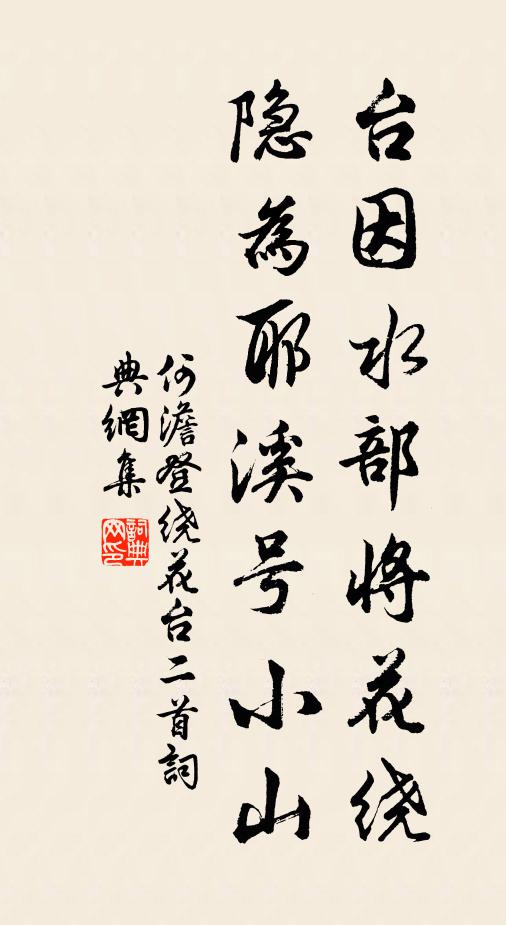 台因水部将花绕
隐為耶溪号小山
何澹登绕花台二首詞
典網集
詞典網印